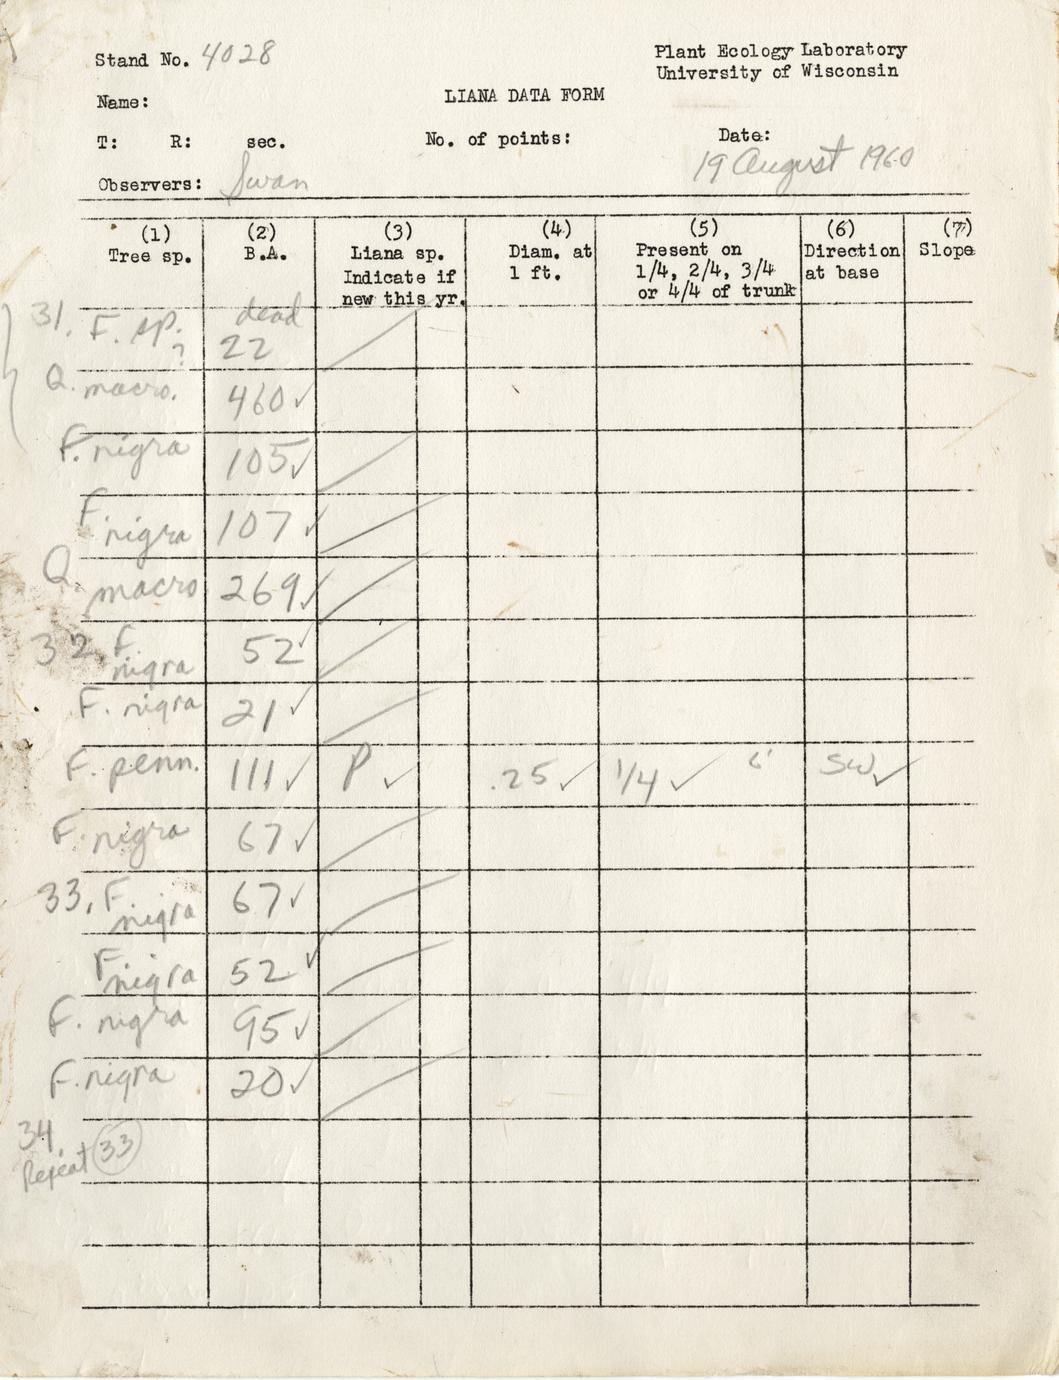 Stand No. 4028
Plant Ecology Laboratory
University of Wisconsin
Name:
LIANA DATA FORM
T: R: sec. No. of points: Date:
19 August 1960
Observers: Swan
(1) (2) (3) (4) (5) (6) (7)
Tree sp. B.A. Liana sp. Diam. at Present on Direction Slope
Indicate if 1 ft. 1/4, 2/4, 3/4 at base
new this yr. or 4/4 of trunk
31. F. sp. ? dead 22
Q. macro. 460 ✓
F. nigra 105 ✓
F. nigra 107 ✓
Q. macro 269 ✓
32. F. nigra 52 ✓
F. nigra 21 ✓
F. penn. 111 ✓ P ✓ .25 ✓ 1/4 ✓ 6' SW ✓
F. nigra 67 ✓
33. F. nigra 67 ✓
F. nigra 52 ✓
F. nigra 95 ✓
F. nigra 20 ✓
34.
Repeat 33